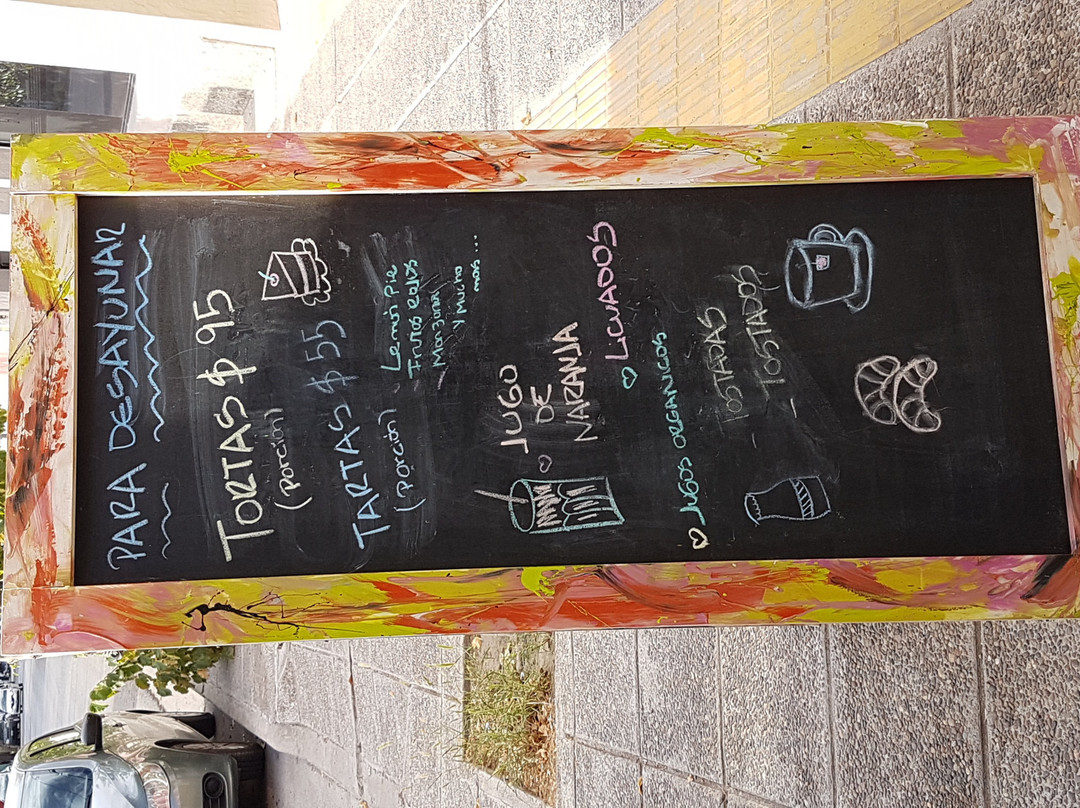 PARA DESAYUNAR
TORTAS $ 95
(porción)
TARTAS $ 55
(porción)
Lemon Pie
Frutos rojos
Manzana
y mucho
mas...
JUGO
DE
NARANJA
LICUADOS
JUGOS ORGANICOS
- TOSTADAS
- TOSTADOS